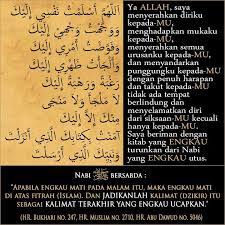 اَللَّهُمَّ أَسْلَمْتُ نَفْسِيْ إِلَيْكَ
وَوَجَّهْتُ وَجْهِيَ إِلَيْكَ
وَفَوَّضْتُ أَمْرِيْ إِلَيْكَ
وَأَلْجَأْتُ ظَهْرِيْ إِلَيْكَ
رَغْبَةً وَرَهْبَةً إِلَيْكَ
لَا مَلْجَأَ وَلَا مَنْجَى
مِنْكَ إِلَّا إِلَيْكَ
آمَنْتُ بِكِتَابِكَ الَّذِيْ أَنْزَلْتَ
وَبِنَبِيِّكَ الَّذِيْ أَرْسَلْتَ
Ya ALLAH, saya
menyerahkan diriku
kepada-MU,
menghadapkan mukaku
kepada-MU,
menyerahkan semua
urusanku kepada-MU,
dan menyandarkan
punggungku kepada-MU
dengan penuh harapan
dan takut kepada-MU
tidak ada tempat
berlindung dan
menyelamatkan diri
dari siksaan-MU kecuali
hanya kepada-MU.
Saya beriman dengan
kitab yang ENGKAU
turunkan dan Nabi
yang ENGKAU utus.
Nabi ﷺ bersabda :
"APABILA ENGKAU MATI PADA MALAM ITU, MAKA ENGKAU MATI
DI ATAS FITRAH (ISLAM). DAN JADIKANLAH KALIMAT (DZIKIR) ITU
SEBAGAI KALIMAT TERAKHIR YANG ENGKAU UCAPKAN."
(HR. BUKHARI NO. 247, HR. MUSLIM NO. 2710, HR. ABU DAWUD NO. 5046)